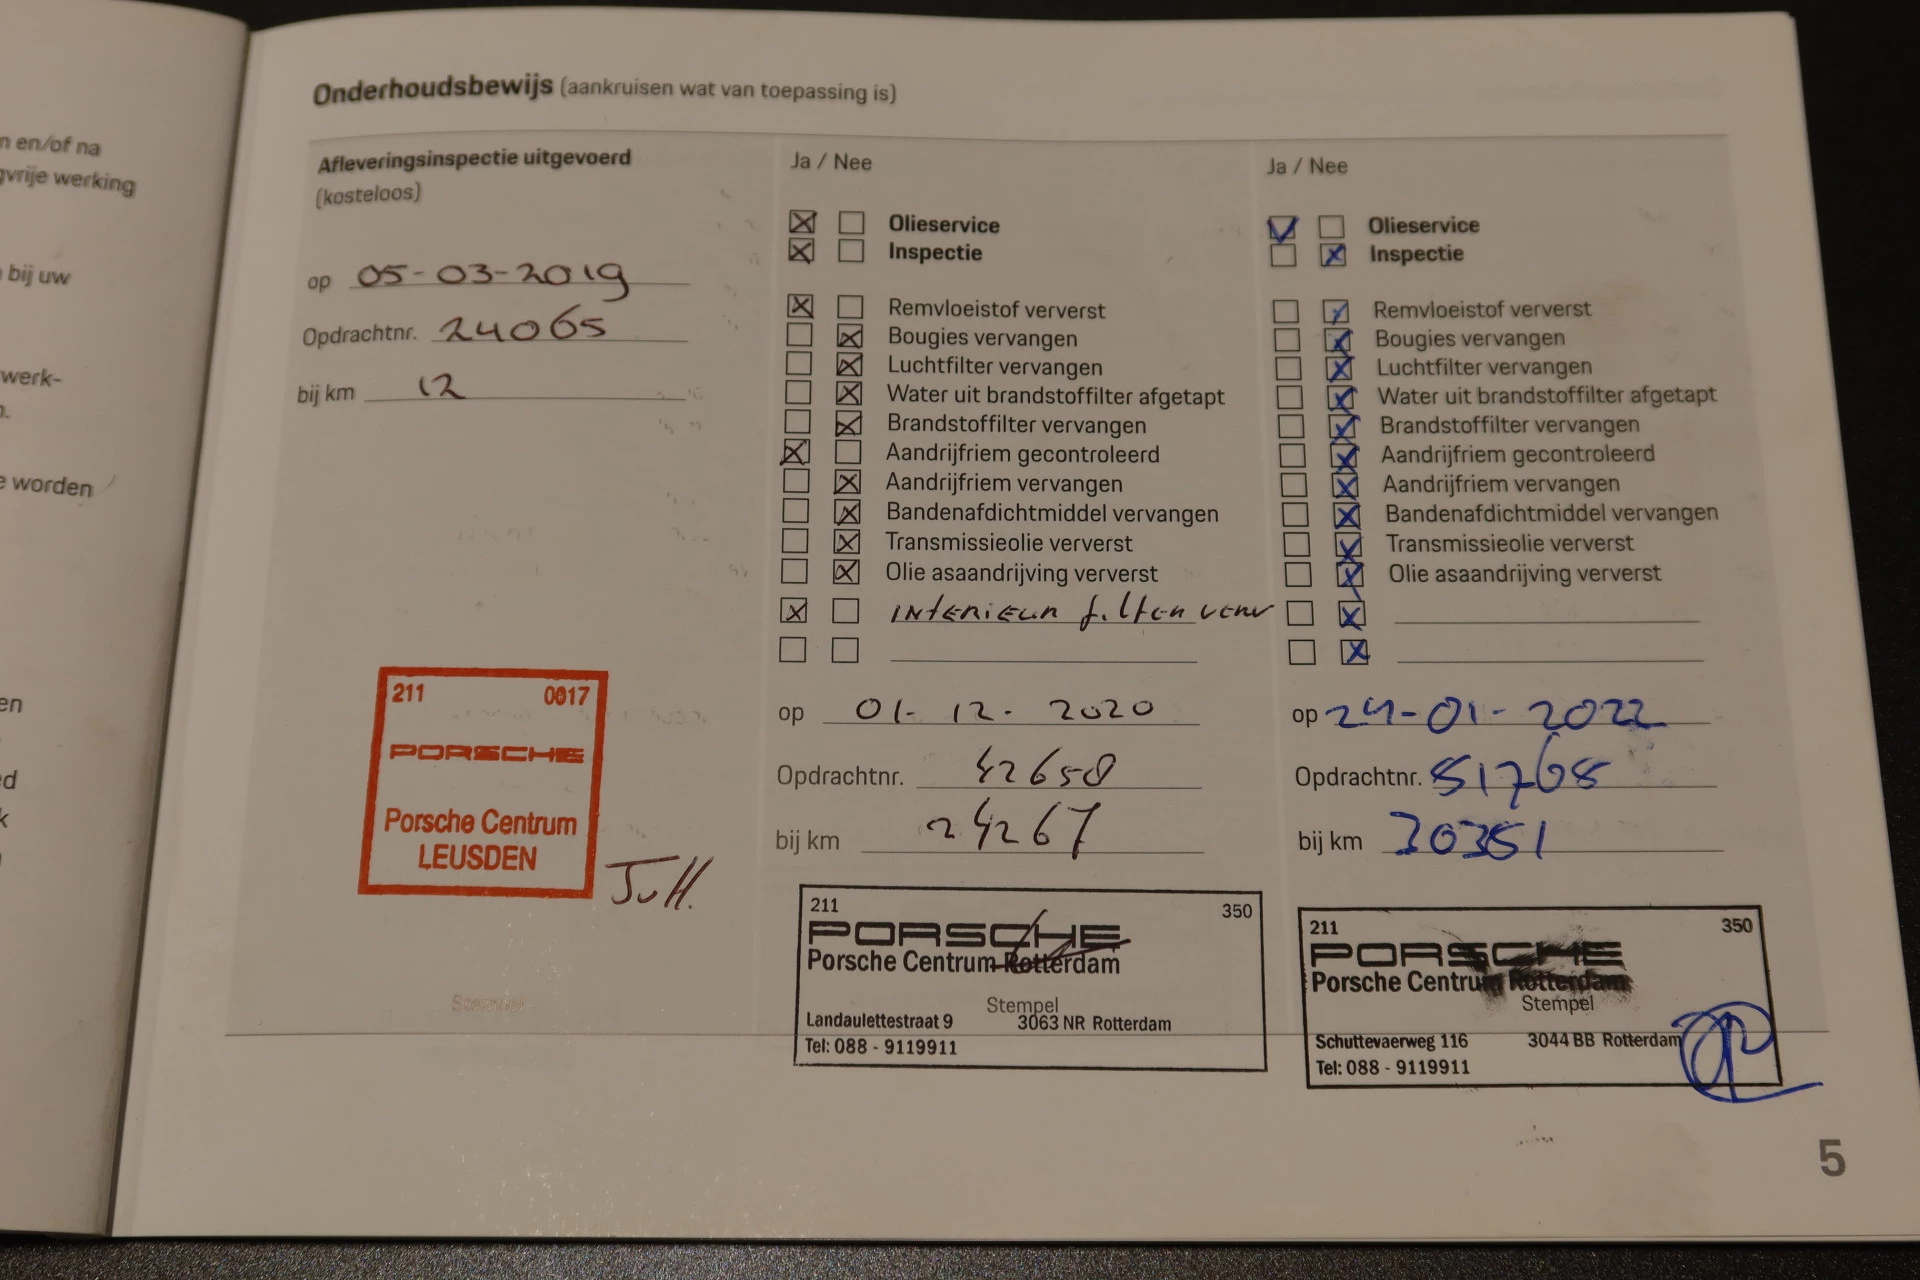 n en/of na
gvrije werking
bij uw
werk-
n.
e worden
en
ed
k
Onderhoudsbewijs (aankruisen wat van toepassing is)
Afleveringsinspectie uitgevoerd
(kosteloos)
op 05-03-2019
Opdrachtnr. 24065
bij km 12
211 0017
PORSCHE
Porsche Centrum
LEUSDEN
Stempel
Ja / Nee
Olieservice
Inspectie
Remvloeistof ververst
Bougies vervangen
Luchtfilter vervangen
Water uit brandstoffilter afgetapt
Brandstoffilter vervangen
Aandrijfriem gecontroleerd
Aandrijfriem vervangen
Bandenafdichtmiddel vervangen
Transmissieolie ververst
Olie asaandrijving ververst
INTERIEUR filter verv
op 01-12-2020
Opdrachtnr. 42658
bij km 24267
211 350
PORSCHE
Porsche Centrum Rotterdam
Stempel
Landaulettestraat 9 3063 NR Rotterdam
Tel: 088 - 9119911
Ja / Nee
Olieservice
Inspectie
Remvloeistof ververst
Bougies vervangen
Luchtfilter vervangen
Water uit brandstoffilter afgetapt
Brandstoffilter vervangen
Aandrijfriem gecontroleerd
Aandrijfriem vervangen
Bandenafdichtmiddel vervangen
Transmissieolie ververst
Olie asaandrijving ververst
op 24-01-2022
Opdrachtnr. 51768
bij km 30351
211 350
PORSCHE
Porsche Centrum Rotterdam
Stempel
Schuttevaerweg 116 3044 BB Rotterdam
Tel: 088 - 9119911
5